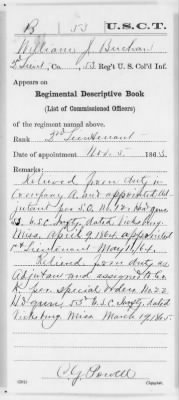 B 53 U.S.C.T.
William J. Buchan
2d Lieut, Co. , 53 Reg't U. S. Col'd Inf.
Appears on
Regimental Descriptive Book
(List of Commissioned Officers)
of the regiment named above.
Rank 2nd Lieutenant
Date of appointment Nov. 5, 1863
Remarks:
Relieved from duty in
Company A. and appointed Ad
jutant Per S.O. No. Hd Qrs
53. U.S.C. Infty, dated Vicksburg
Miss. April 9 1864, appointed
1st Lieutenant May 1, 64.
Relieved from duty as
Adjutant and assigned to Co.
K. Per special orders No. 22
Hd Qrs, 53" U.S.C. Infty, dated
Vicksburg Miss March 19, 1865.
C. G. Powell
Copyist.